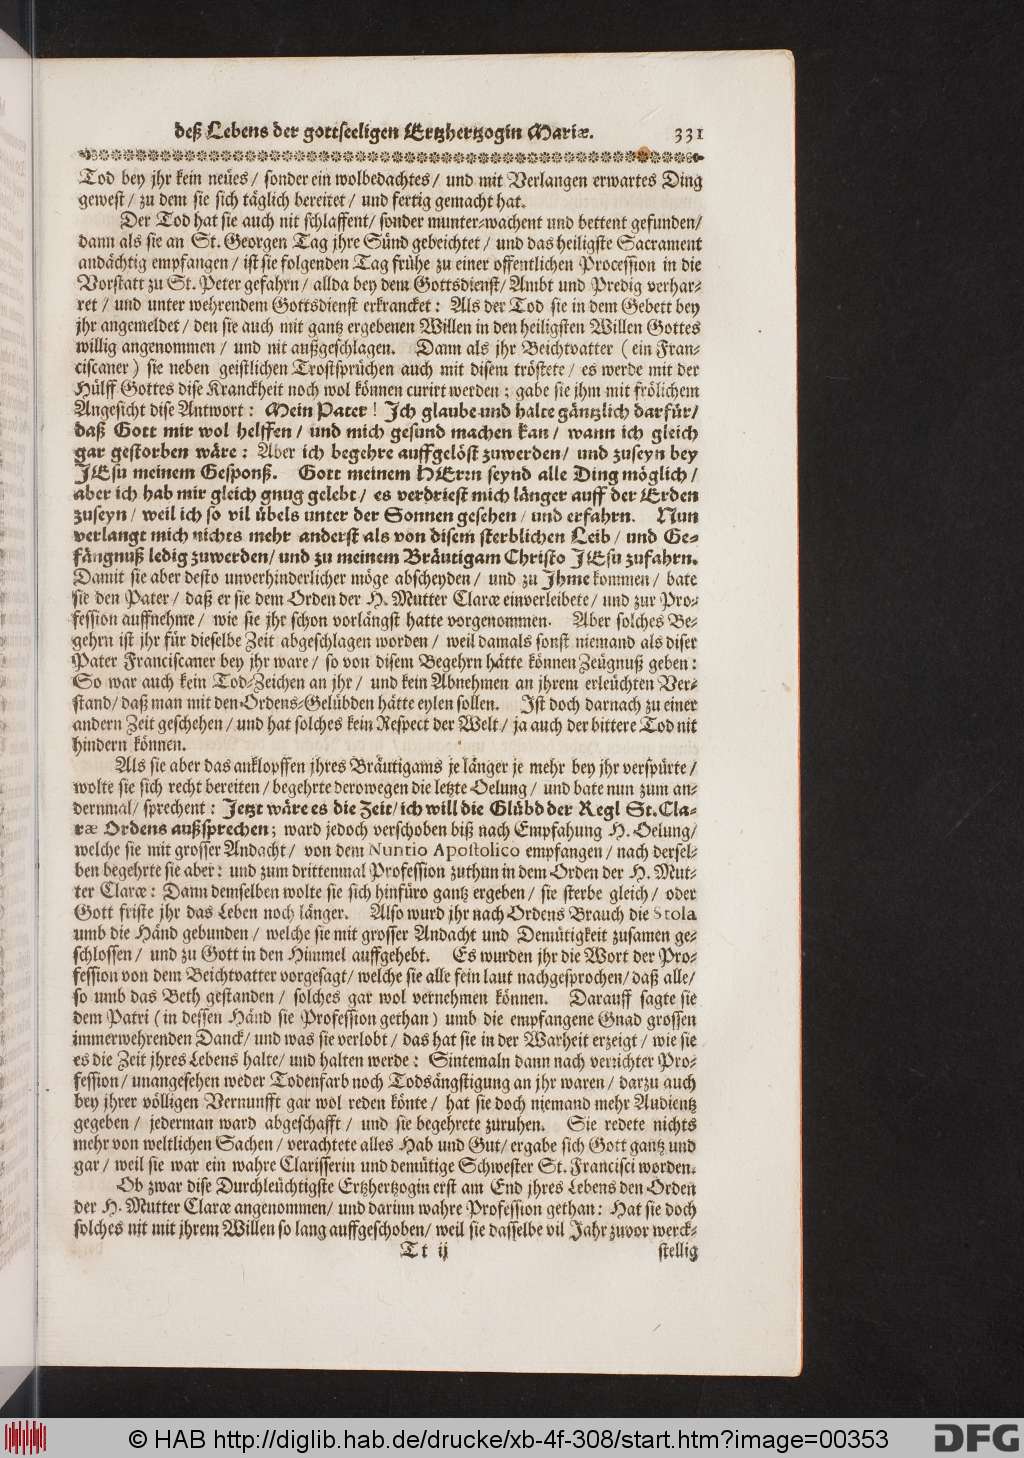 deß Lebens der gottseeligen Ertzhertzogin Mariæ. 331
Tod bey jhr kein neües / sonder ein wolbedachtes / und mit Verlangen erwartes Ding
gewest / zu dem sie sich täglich bereitet / und fertig gemacht hat.
Der Tod hat sie auch nit schlaffent / sonder munter-wachent und bettent gefunden /
dann als sie an St. Georgen Tag jhre Sünd gebeichtet / und das heiligste Sacrament
andächtig empfangen / ist sie folgenden Tag frühe zu einer offentlichen Procession in die
Vorstatt zu St. Peter gefahrn / allda bey dem Gottsdienst / Ambt und Predig verhar-
ret / und unter wehrendem Gottsdienst erkrancket: Als der Tod sie in dem Gebett bey
jhr angemeldet / den sie auch mit gantz ergebenen Willen in den heiligsten Willen Gottes
willig angenommen / und nit außgeschlagen. Dann als jhr Beichtvatter (ein Fran-
ciscaner) sie neben geistlichen Trostsprüchen auch mit disem tröstete / es werde mit der
Hülff Gottes dise Kranckheit noch wol können curirt werden; gabe sie jhm mit frölichem
Angesicht dise Antwort: Mein Pater! Ich glaube und halte gäntzlich darfür /
daß Gott mir wol helffen / und mich gesund machen kan / wann ich gleich
gar gestorben wäre: Aber ich begehre auffgelöst zuwerden / und zuseyn bey
JEsu meinem Gesponß. Gott meinem HErrn seynd alle Ding möglich /
aber ich hab mir gleich gnug gelebt / es verdriest mich länger auff der Erden
zuseyn / weil ich so vil übels unter der Sonnen gesehen / und erfahrn. Nun
verlangt mich nichts mehr anderst als von disem sterblichen Leib / und Ge-
fängnuß ledig zuwerden / und zu meinem Bräutigam Christo JEsu zufahrn.
Damit sie aber desto unverhinderlicher möge abscheyden / und zu Ihme kommen / bate
sie den Pater / daß er sie dem Orden der H. Mutter Claræ einverleibete / und zur Pro-
fession auffnehme / wie sie jhr schon vorlängst hatte vorgenommen. Aber solches Be-
gehrn ist jhr für dieselbe Zeit abgeschlagen worden / weil damals sonst niemand als diser
Pater Franciscaner bey jhr ware / so von disem Begehrn hätte können Zeügnuß geben:
So war auch kein Tod-Zeichen an jhr / und kein Abnehmen an jhrem erleüchten Ver-
stand / daß man mit den Ordens-Gelübden hätte eylen sollen. Ist doch darnach zu einer
andern Zeit geschehen / und hat solches kein Respect der Welt / ja auch der bittere Tod nit
hindern können.
Als sie aber das anklopffen jhres Bräutigams je länger je mehr bey jhr verspürte /
wolte sie sich recht bereiten / begehrte derowegen die letzte Oelung / und bate nun zum an-
dernmal / sprechent: Jetzt wäre es die Zeit / ich will die Glübd der Regl St. Cla-
ræ Ordens außsprechen; ward jedoch verschoben biß nach Empfahung H. Oelung /
welche sie mit grosser Andacht / von dem Nuntio Apostolico empfangen / nach dersel-
ben begehrte sie aber: und zum drittenmal Profession zuthun in dem Orden der H. Mut-
ter Claræ: Dann demselben wolte sie sich hinfüro gantz ergeben / sie sterbe gleich / oder
Gott friste jhr das Leben noch länger. Also wurd jhr nach Ordens Brauch die Stola
umb die Händ gebunden / welche sie mit grosser Andacht und Demütigkeit zusamen ge-
schlossen / und zu Gott in den Himmel auffgehebt. Es wurden jhr die Wort der Pro-
fession von dem Beichtvatter vorgesagt / welche sie alle fein laut nachgesprochen / daß alle /
so umb das Beth gestanden / solches gar wol vernehmen können. Darauff sagte sie
dem Patri (in dessen Händ sie Profession gethan) umb die empfangene Gnad grossen
immerwehrenden Danck / und was sie verlobt / das hat sie in der Warheit erzeigt / wie sie
es die Zeit jhres Lebens halte / und halten werde: Sintemaln dann nach verrichter Pro-
fession / unangesehen weder Todenfarb noch Todsängstigung an jhr waren / darzu auch
bey jhrer völligen Vernunfft gar wol reden könte / hat sie doch niemand mehr Audientz
gegeben / jederman ward abgeschafft / und sie begehrete zuruhen. Sie redete nichts
mehr von weltlichen Sachen / verachtete alles Hab und Gut / ergabe sich Gott gantz und
gar / weil sie war ein wahre Clarisserin und demütige Schwester St. Francisci worden.
Ob zwar dise Durchleüchtigste Ertzhertzogin erst am End jhres Lebens den Orden
der H. Mutter Claræ angenommen / und darinn wahre Profession gethan: Hat sie doch
solches nit mit jhrem Willen so lang auffgeschoben / weil sie dasselbe vil Jahr zuvor werck-
Tt ij stellig
© HAB http://diglib.hab.de/drucke/xb-4f-308/start.htm?image=00353
DFG